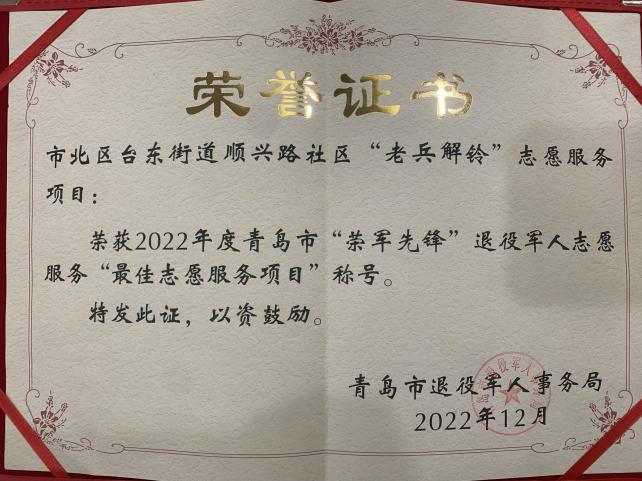 荣誉证书
市北区台东街道顺兴路社区“老兵解铃”志愿服务
项目：
荣获2022年度青岛市“荣军先锋”退役军人志愿
服务“最佳志愿服务项目”称号。
特发此证，以资鼓励。
青岛市退役军人事务局
2022年12月